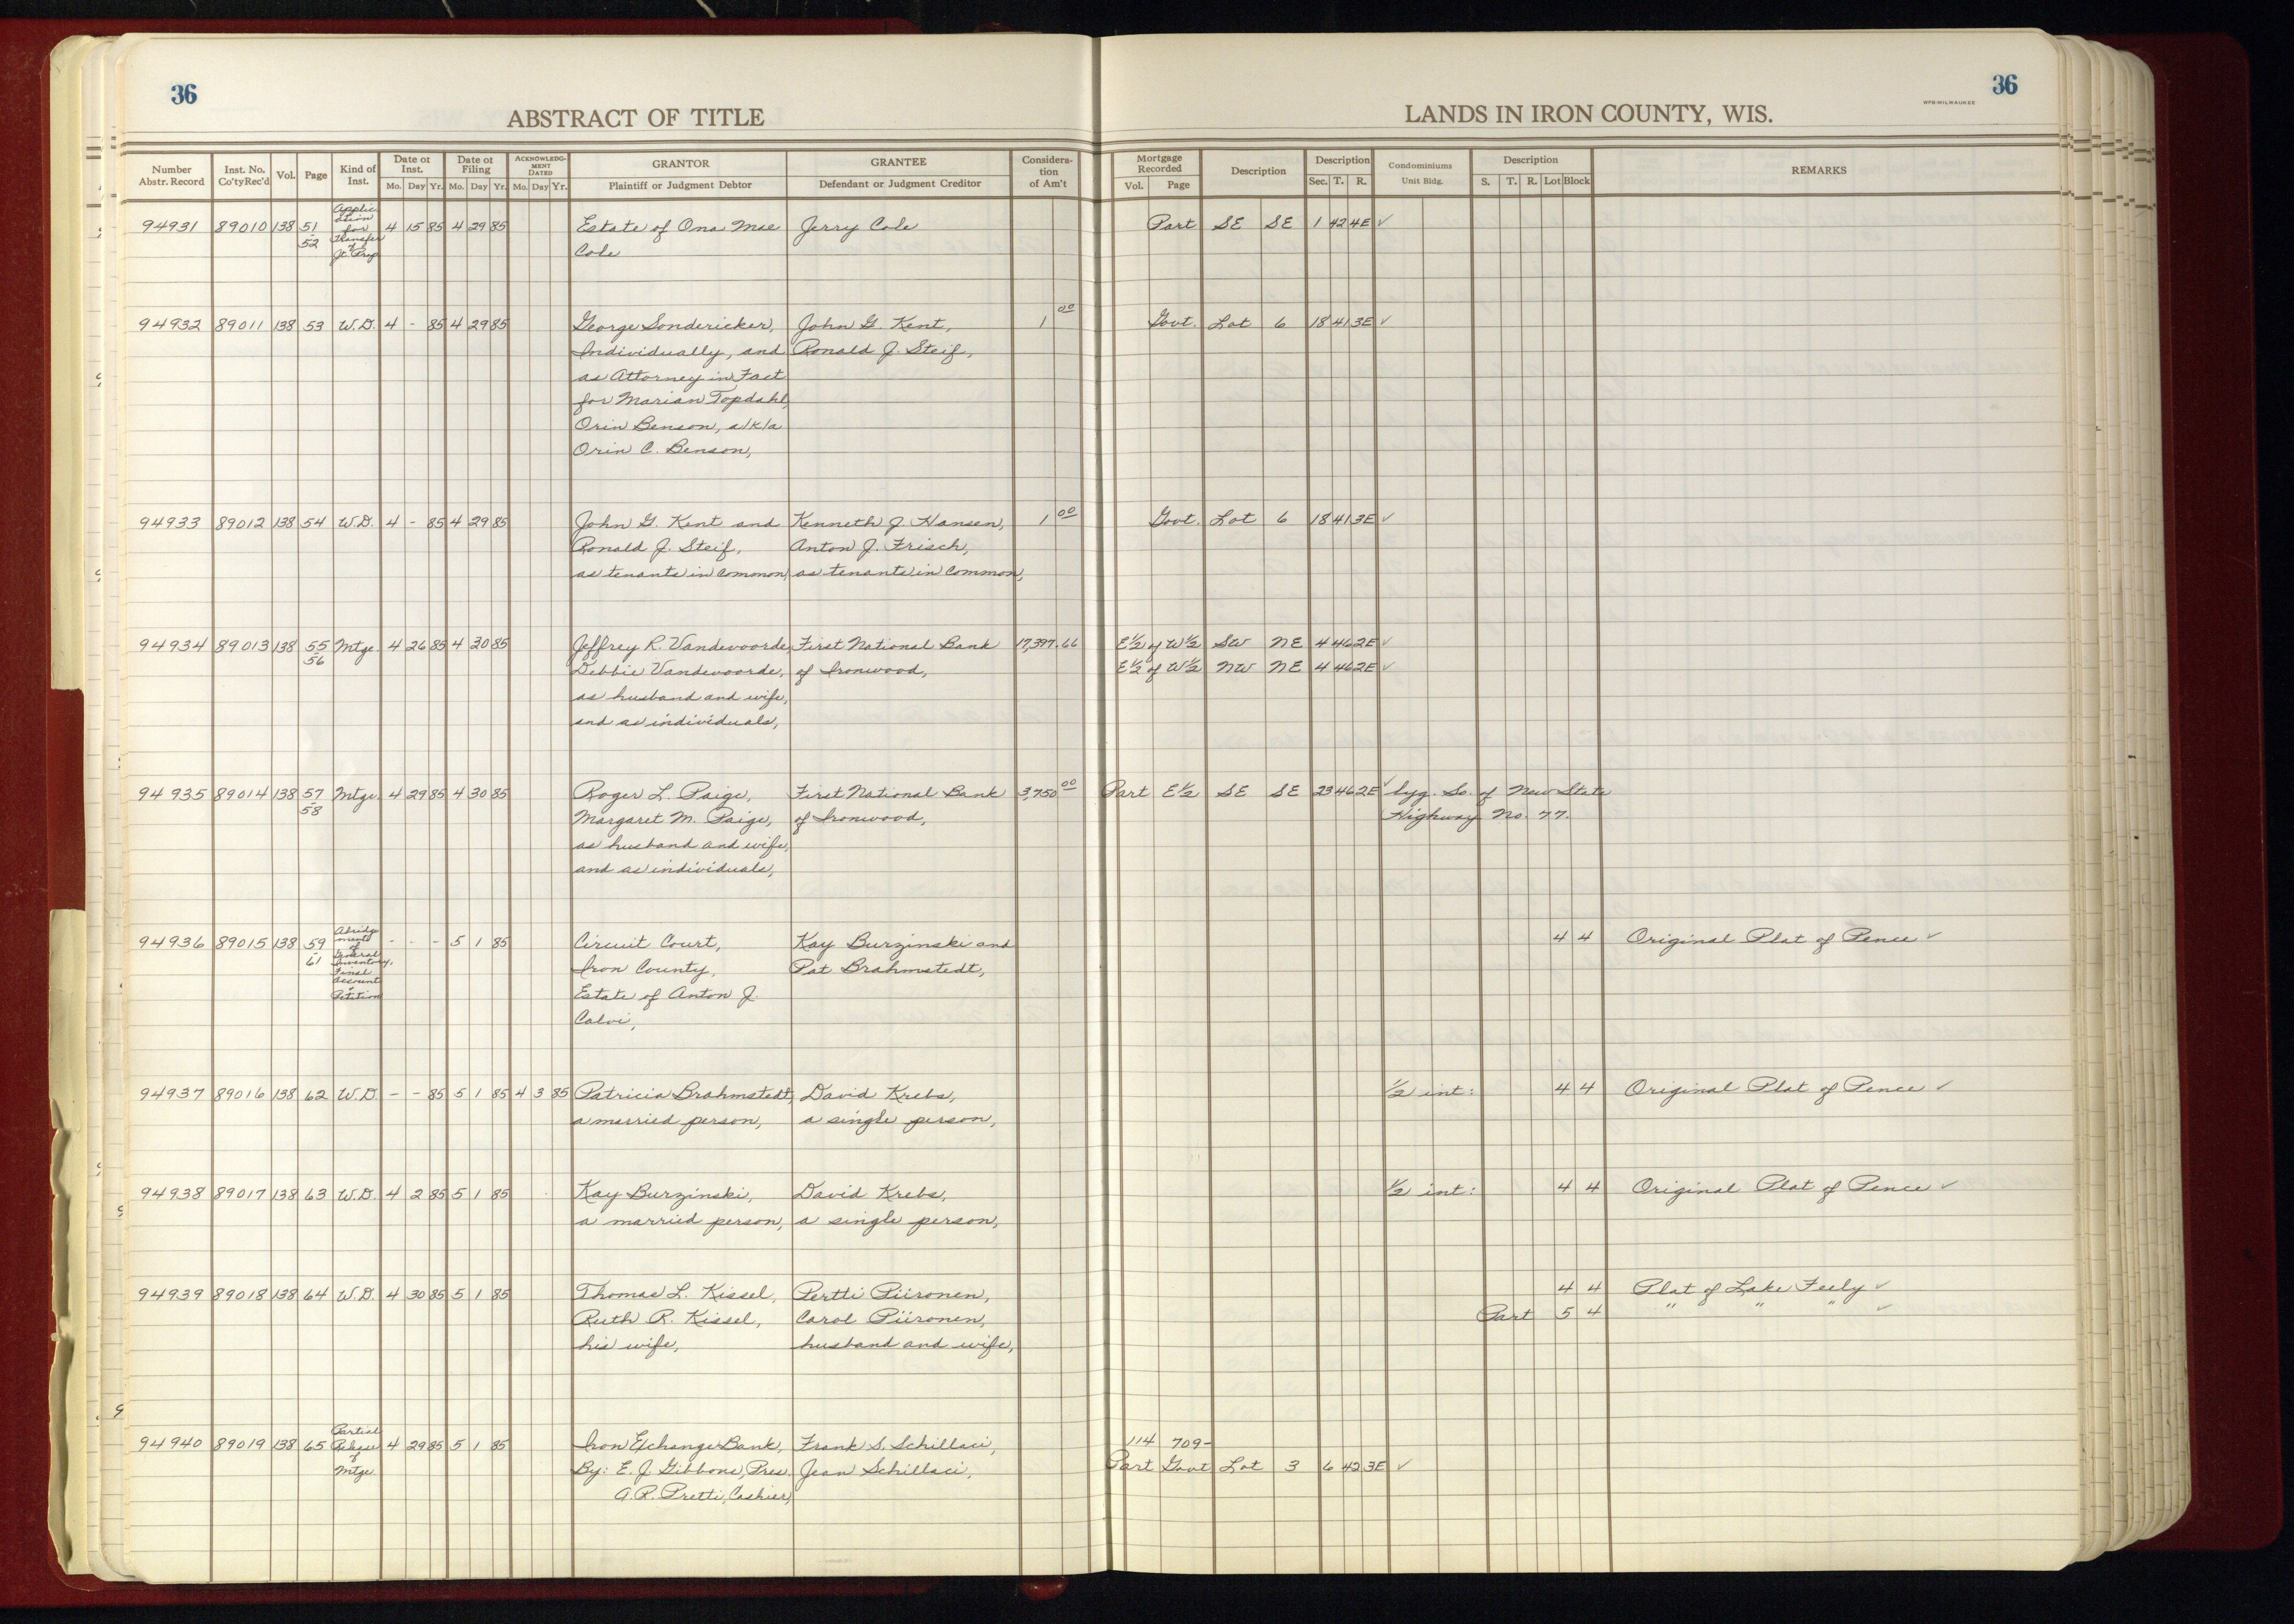 36
36
WPB-MILWAUKEE
ABSTRACT OF TITLE
LANDS IN IRON COUNTY, WIS.
Number Abstr. Record | Inst. No. Co'ty Rec'd | Vol. | Page | Kind of Inst. | Date of Inst. Mo. Day Yr. | Date of Filing Mo. Day Yr. | ACKNOWLEDGMENT DATED Mo. Day Yr. | GRANTOR Plaintiff or Judgment Debtor | GRANTEE Defendant or Judgment Creditor | Consideration of Am't | Mortgage Recorded Vol. Page | Description | Description Sec. T. R. | Condominiums Unit Bldg. | Description S. T. R. Lot Block | REMARKS
94931 89010 138 51-52 Application for Transfer of Jt. Prop 4 15 85 4 29 85 Estate of Ona Mae Jerry Cole Part SE SE 1 42 4E ✓
Cole
94932 89011 138 53 W.D. 4 - 85 4 29 85 George Sondericker, John G. Kent, 1 00 Govt. Lot 6 18 41 3E ✓
Individually, and Ronald J. Steif,
as Attorney in Fact
for Marian Topdahl,
Orin Benson, a/k/a
Orin C. Benson,
94933 89012 138 54 W.D. 4 - 85 4 29 85 John G. Kent and Kenneth J. Hansen, 1 00 Govt. Lot 6 18 41 3E ✓
Ronald J. Steif, Anton J. Frisch,
as tenants in common, as tenants in common,
94934 89013 138 55-56 Mtge. 4 26 85 4 30 85 Jeffrey R. Vandevoorde, First National Bank 17,397.66 E½ of W½ SW NE 4 46 2E ✓
Debbie Vandevoorde, of Ironwood, E½ of W½ NW NE 4 46 2E ✓
as husband and wife,
and as individuals,
94935 89014 138 57-58 Mtge. 4 29 85 4 30 85 Roger L. Paige, First National Bank 3,750 00 Part E½ SE SE 23 46 2E ✓ lyg. So. of New State
Margaret M. Paige, of Ironwood, Highway No. 77.
as husband and wife,
and as individuals,
94936 89015 138 59-61 Abridgments of General Inventory, Final Account & Petition - - - 5 1 85 Circuit Court, Kay Burzinski and 4 4 Original Plat of Pence ✓
Iron County, Pat Brahmstedt,
Estate of Anton J.
Calvi,
94937 89016 138 62 W.D. - - 85 5 1 85 4 3 85 Patricia Brahmstedt, David Krebs, ½ int: 4 4 Original Plat of Pence ✓
a married person, a single person,
94938 89017 138 63 W.D. 4 2 85 5 1 85 Kay Burzinski, David Krebs, ½ int: 4 4 Original Plat of Pence ✓
a married person, a single person,
94939 89018 138 64 W.D. 4 30 85 5 1 85 Thomas L. Kissel, Pertti Piironen, 4 4 Plat of Lake Feely ✓
Ruth R. Kissel, Carol Piironen, Part 5 4 " " " ✓
his wife, husband and wife,
94940 89019 138 65 Partial Release of Mtge. 4 29 85 5 1 85 Iron Exchange Bank, Frank S. Schillaci, 114 709-
By: E. J. Gibbons, Pres. Jean Schillaci, Part Govt Lot 3 6 42 3E ✓
A.R. Pretti, Cashier,